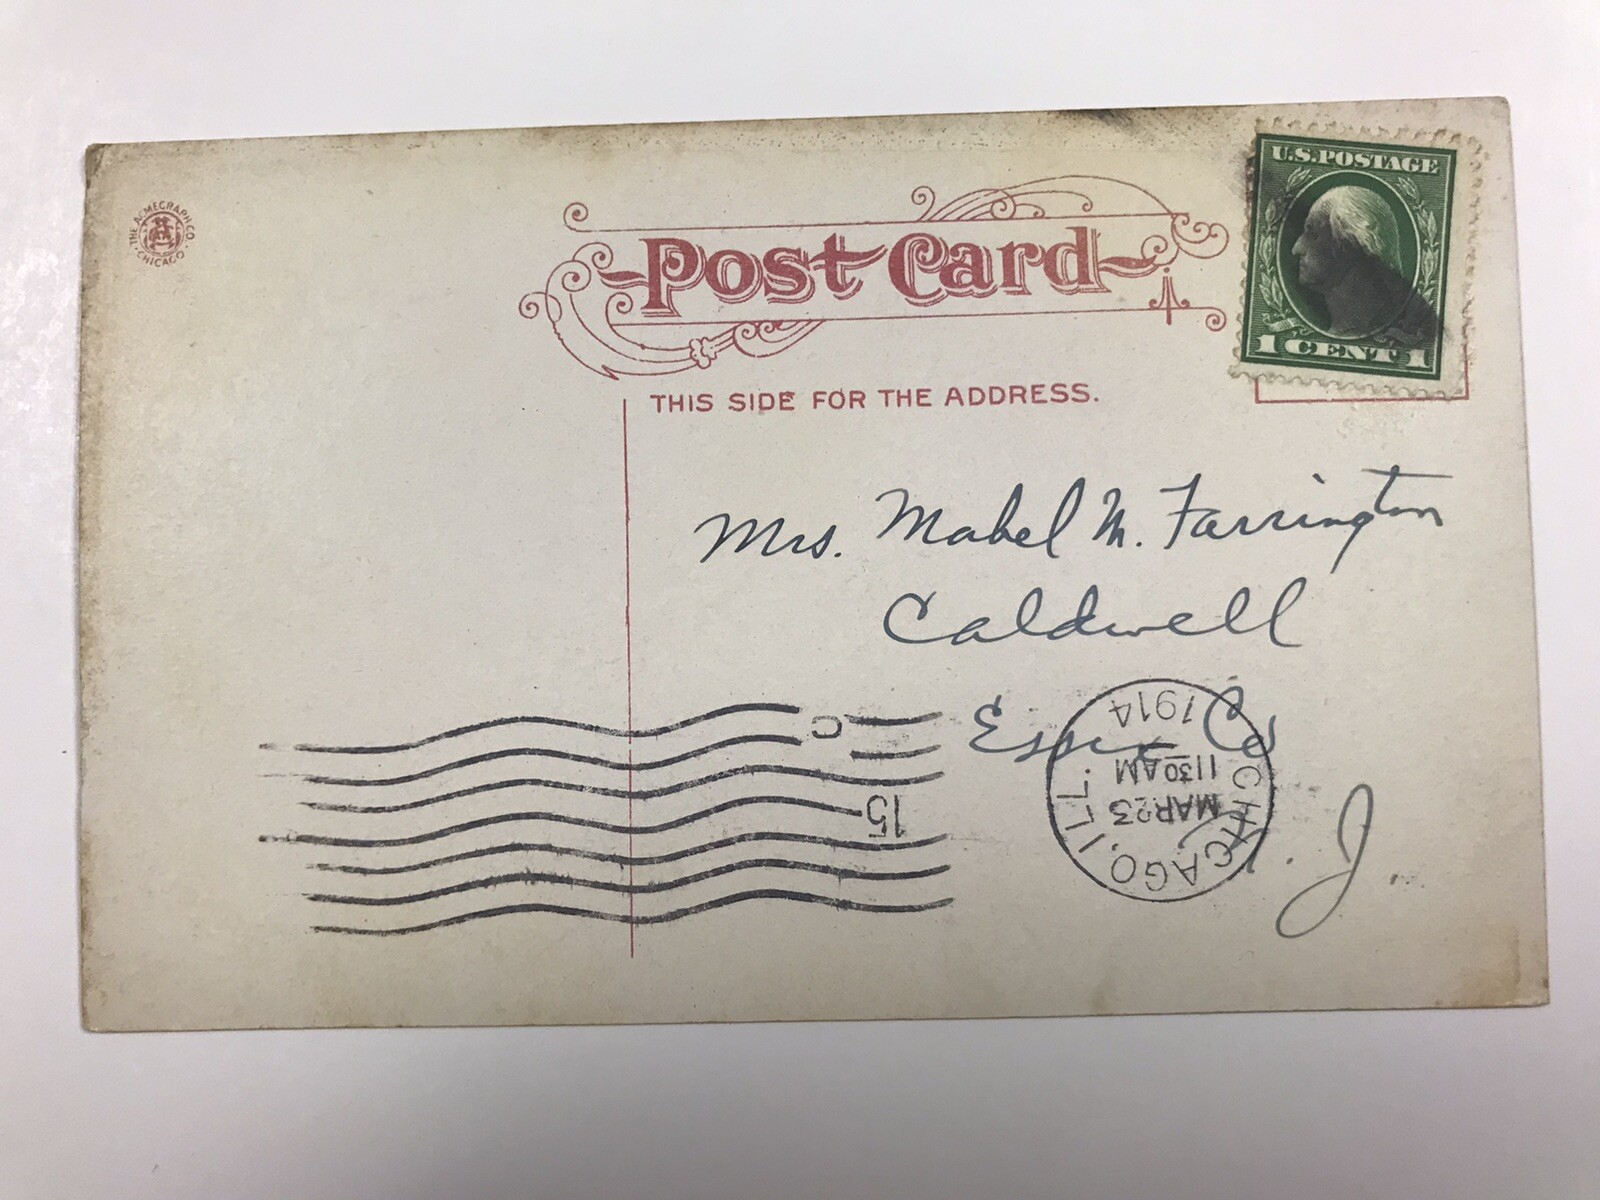 THE ACMEGRAPH CO. CHICAGO
Post Card
U.S.POSTAGE
1 CENT 1
THIS SIDE FOR THE ADDRESS.
Mrs. Mabel M. Farrington
Caldwell
Essex Co
N. J.
CHICAGO, ILL.
MAR 23
11 30 AM
1914
C
15